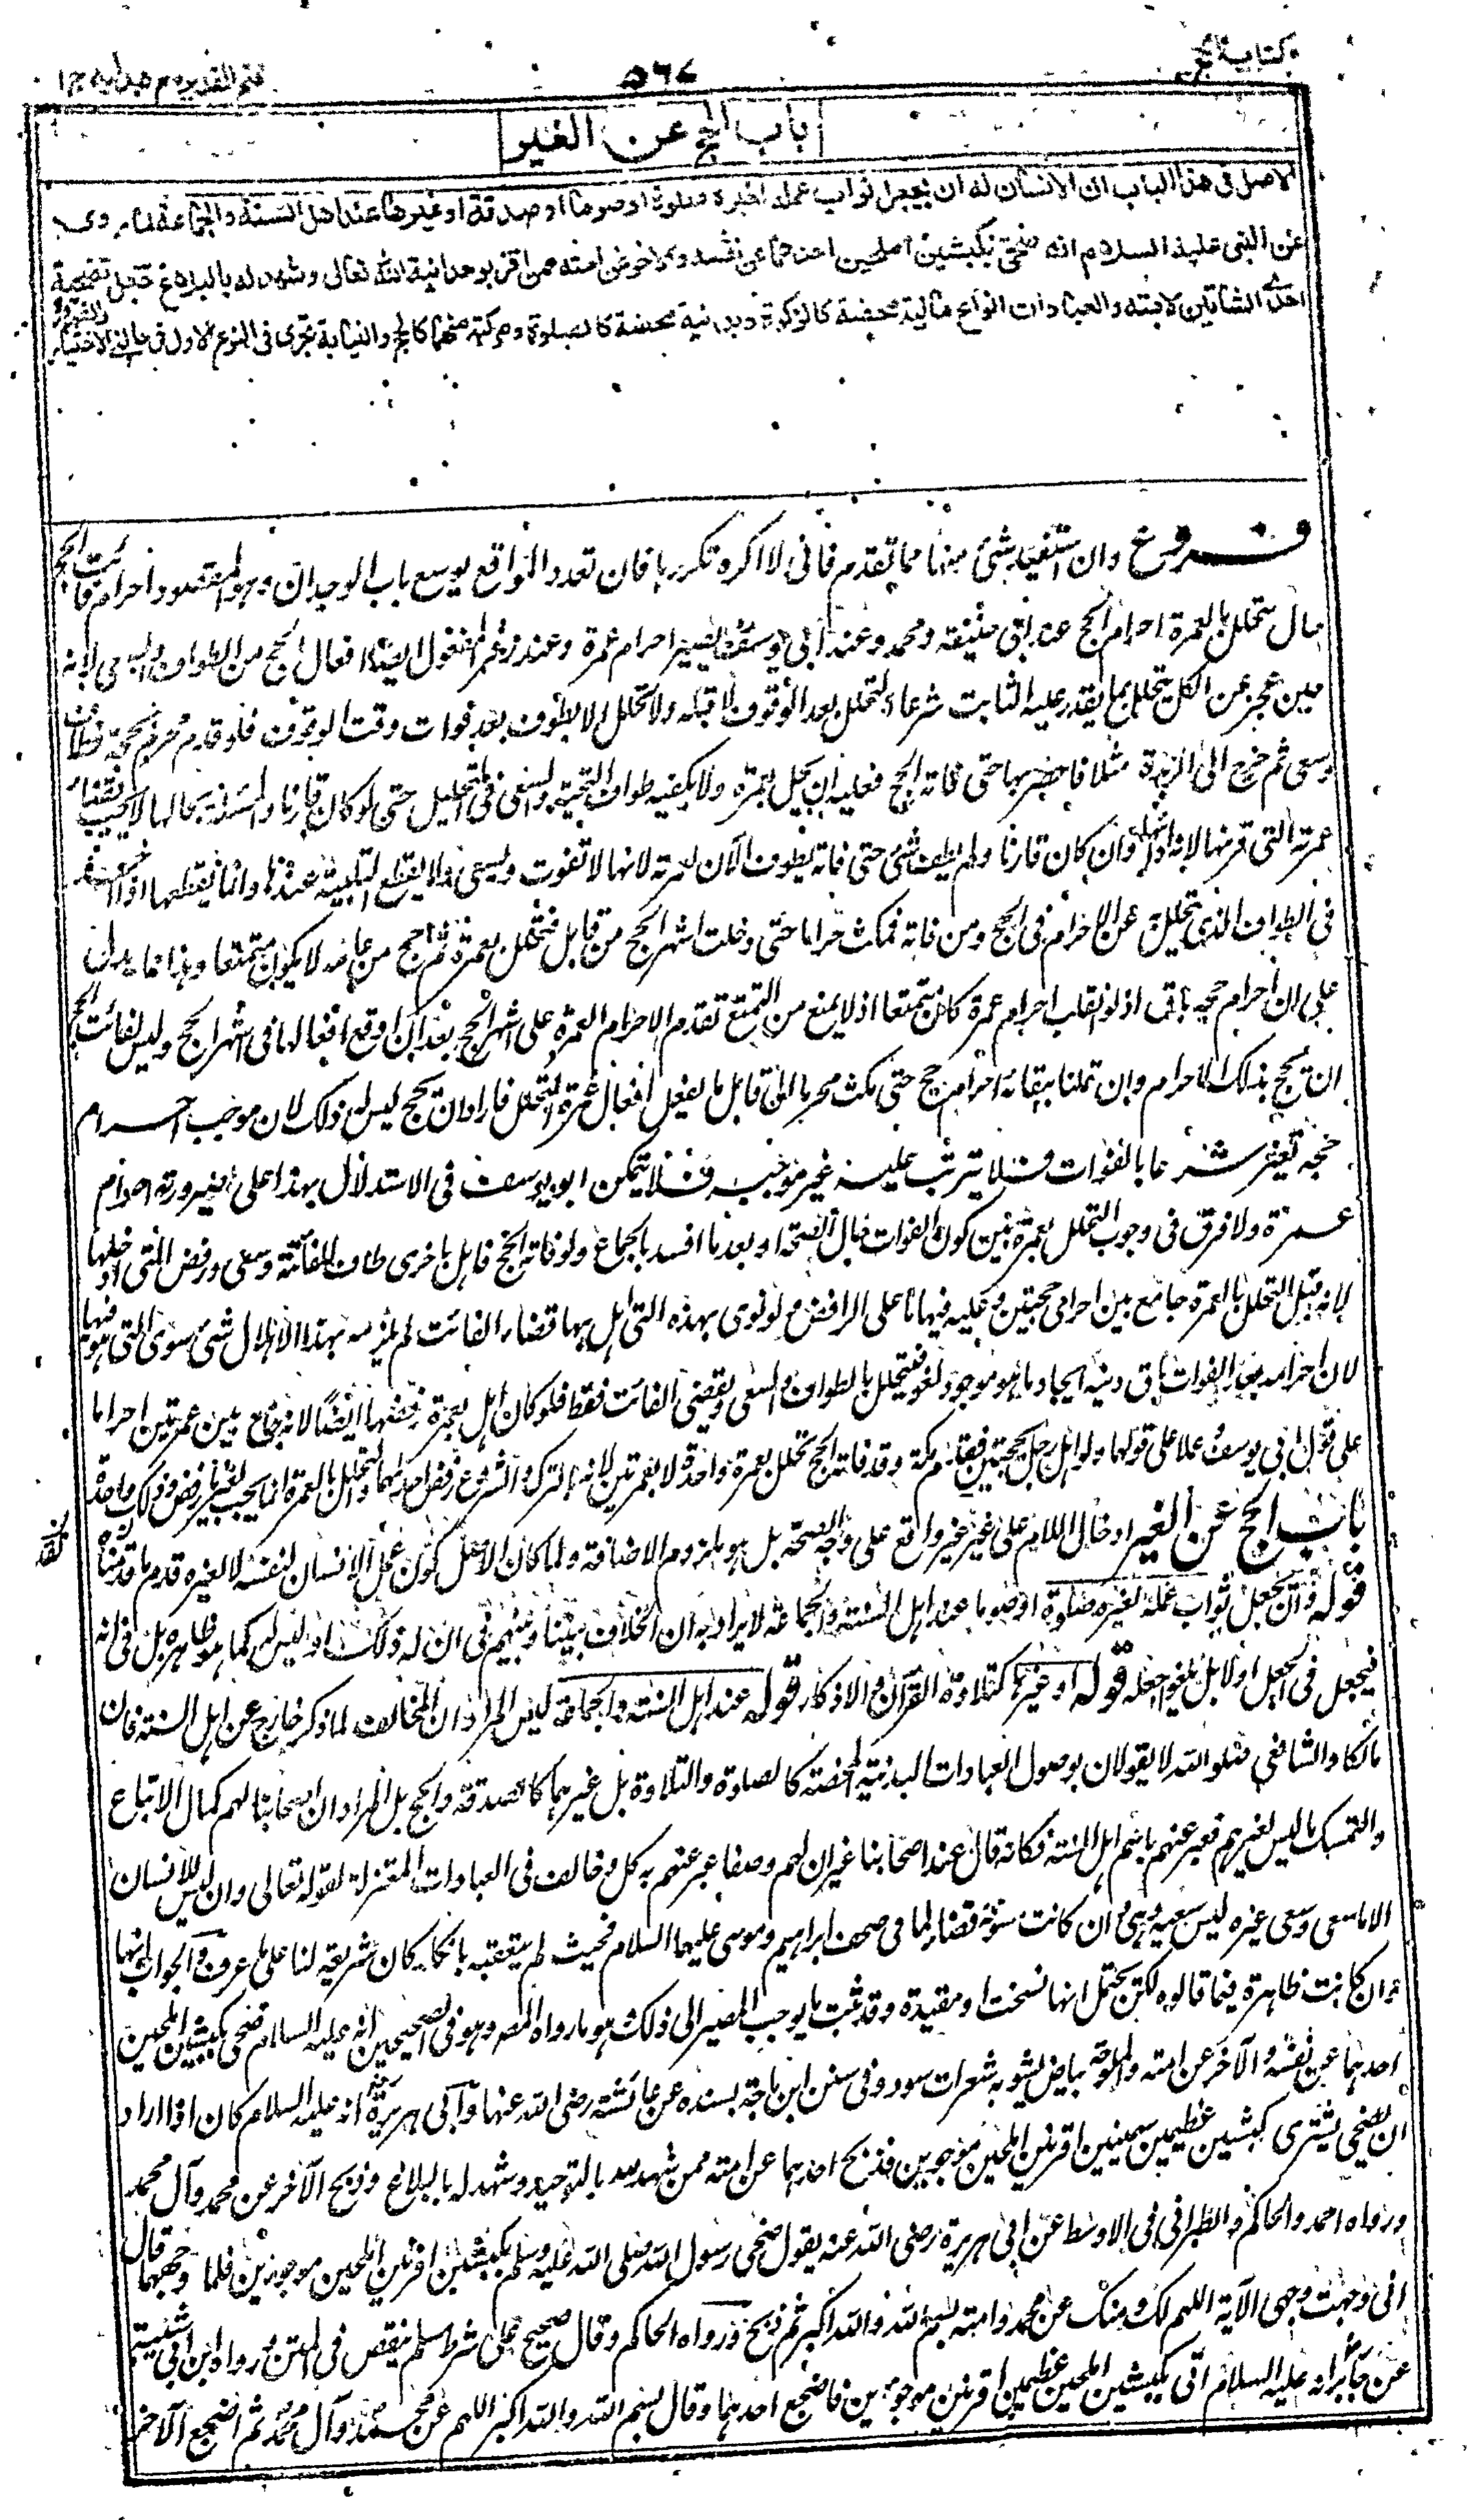 كتاب الحج
٥٦٧
فتح القدير مع هداية ج ١
باب الحج عن الغير
الاصل فى هذا الباب ان الانسان له ان يجعل ثواب عمله لغيره صلوة او صوما او صدقة او غيرها عند اهل السنة والجماعة لما روى
عن النبى عليه السلام انه ضحى بكبشين املحين احدهما عن نفسه والاخر عن امته ممن اقر بوحدانية الله تعالى وشهد له بالبلاغ جعل تضحية
احدى الشاتين لامته والعبادات انواع مالية محضة كالزكوة وبدنية محضة كالصلوة ومركبة منهما كالحج والنيابة تجرى فى النوع الاول فى حالتى الاختيار والضرورة
فروع وان استفيد شئ منها مما تقدم فانى لا اكره تكررها فان تعدد المواقع يوسع باب الوجدان وهو المقصود احرام فائت الحج
حال تحلل بالعمرة احرام الحج عند ابى حنيفة ومحمد وعند ابى يوسف يصير احرام عمرة وعند زفر المفعول ايضا افعال الحج من الطواف والسعى لانه
حين عجز عن الكل يتحلل بما يقدر عليه الثابت شرعا التحلل بعد الوقوف لا قبله ولا تحلل الا بطواف بعد فوات وقت الوقوف فلو قدم محرم بحجة فطاف
وسعى ثم خرج الى الربذة مثلا فاحصر بها حتى فاته الحج فعليه ان يحل بعمرة ولا يكفيه طواف التحية والسعى فى التحليل حتى لو كان قارنا والمسئلة بحالها لا يجب قضاء
عمرته التى قرنها لانه اداها وان كان قارنا ولم يطف شئ حتى فاته يطوف الآن لعمرته لانها لا تفوت ويسعى ولا يقطع التلبية عندها وانما يقطعها اذا اخذ
فى الطواف الذى يتحلل به عن الاحرام فى الحج ومن فاته فمكث حراما حتى دخلت اشهر الحج من قابل فتحلل بعمرة ثم حج من عامه لا يكون متمتعا وهذا مما يدل
على ان احرام حجه باق اذ لو انقلب احرام عمرة كان متمتعا اذ لا يمنع من التمتع تقدم الاحرام العمرة على اشهر الحج بعد ان اوقع افعالها فى اشهر الحج وليس لفائت الحج
ان يحج بذلك الاحرام وان قلنا ببقاء احرام حج حتى مكث محرما الى قابل ما لم يفعل افعال عمرة التحلل فاراد ان يحج ليس له ذلك لان موجب احرام
حجه تغير شرعا بالفوات فلا يترتب عليه غير موجبه فلا يتمكن ابو يوسف فى الاستدلال بهذا على صيرورته احرام
عمرة ولا فرق فى وجوب التحلل بعمرة بين كون الفوات حال الصحة او بعد ما افسد بالجماع ولو فاته الحج فاهل باخرى طاف للفائتة وسعى ورفض التى ادخلها
لانه قبل التحلل بالعمرة جامع بين احرامى حجتين وعليه فيها ما على الرافض ولو نوى بهذه التى اهل بها قضاء الفائت لم يلزمه بهذا الاهلال شئ سوى التى هو فيها
لان احرامه بعد الفوات باق ونية ايجاد ما هو موجود لغو فيتحلل بالطواف والسعى ويقضى الفائت فقط فلو كان اهل بعمرة رفضها ايضا لانه جامع بين عمرتين احراما
على قول ابى يوسف وعملا على قولهما ولو اهل رجل بحجتين فقدم مكة وقد فاته الحج تحلل بعمرة واحدة لا بعمرتين لانه بالترك والشروع رفض احدهما والتحلل بالعمرة انما يجب لغير الرفض وذلك واحد
باب الحج عن الغير ادخال اللام على غير غير واقع على وجه الصحة بل هو ملزوم الاضافة ولما كان الاصل كون عمل الانسان لنفسه لا لغيره قدم ما تقدم
قوله ان يجعل ثواب عمله لغيره صلوة او صوما عند اهل السنة والجماعة لا يراد به ان الخلاف بيننا وبينهم فى ان له ذلك او ليس له كما هو ظاهره بل فى انه
ينجعل فى الجعل اولا بل يلغو جعله قوله او غيرها كتلاوة القرآن والاذكار قوله عند اهل السنة والجماعة ليس المراد ان المخالف لما ذكر خارج عن اهل السنة فان
مالكا والشافعى رضى الله لا يقولان بوصول العبادات البدنية المحضة كالصلوة والتلاوة بل غيرهما كالصدقة والحج بل المراد ان اصحابنا لهم كمال الاتباع
والتمسك ما ليس لغيرهم فعبر عنهم باسم اهل السنة فكانه قال عند اصحابنا غير ان لهم وصفا عبر عنهم به كل وخالف فى العبادات المعتزلة لقوله تعالى وان ليس للانسان
الا ما سعى وسعى غيره ليس سعيه وهى وان كانت مسوقة قصا لما فى صحف ابراهيم وموسى عليهما السلام فحيث لم يتعقبه بانكار كان شريعة لنا على ما عرف والجواب انها
وان كانت ظاهرة فيما قالوه لكن يحتمل انها نسخت او مقيدة وقد ثبت ما يوجب المصير الى ذلك هو ما رواه المص وهو فى الصحيحين انه عليه السلام ضحى بكبشين املحين
احدهما عن نفسه والآخر عن امته والملحة بياض يشوبه شعرات سود وفى سنن ابن ماجة بسنده عن عائشة رضى الله عنها وابى هريرة انه عليه السلام كان اذا اراد
ان يضحى يشترى كبشين عظيمين سمينين اقرنين املحين موجوئين فذبح احدهما عن امته ممن شهد لله بالتوحيد وشهد له بالبلاغ وذبح الآخر عن محمد وآل محمد
ورواه احمد والحاكم والطبرانى فى الاوسط عن ابى هريرة رضى الله عنه يقول ضحى رسول الله صلى الله عليه وسلم بكبشين اقرنين املحين موجوئين فلما وجههما قال
انى وجهت وجهى الآية اللهم لك ومنك عن محمد وامته بسم الله والله اكبر ثم ذبح ورواه الحاكم وقال صحيح على شرط مسلم بنقص فى المتن ورواه ابن ابى شيبة
عن جابر انه عليه السلام اتى بكبشين املحين عظيمين اقرنين موجوئين فاضجع احدهما وقال بسم الله والله اكبر اللهم عن محمد وآل محمد ثم اضجع الآخر